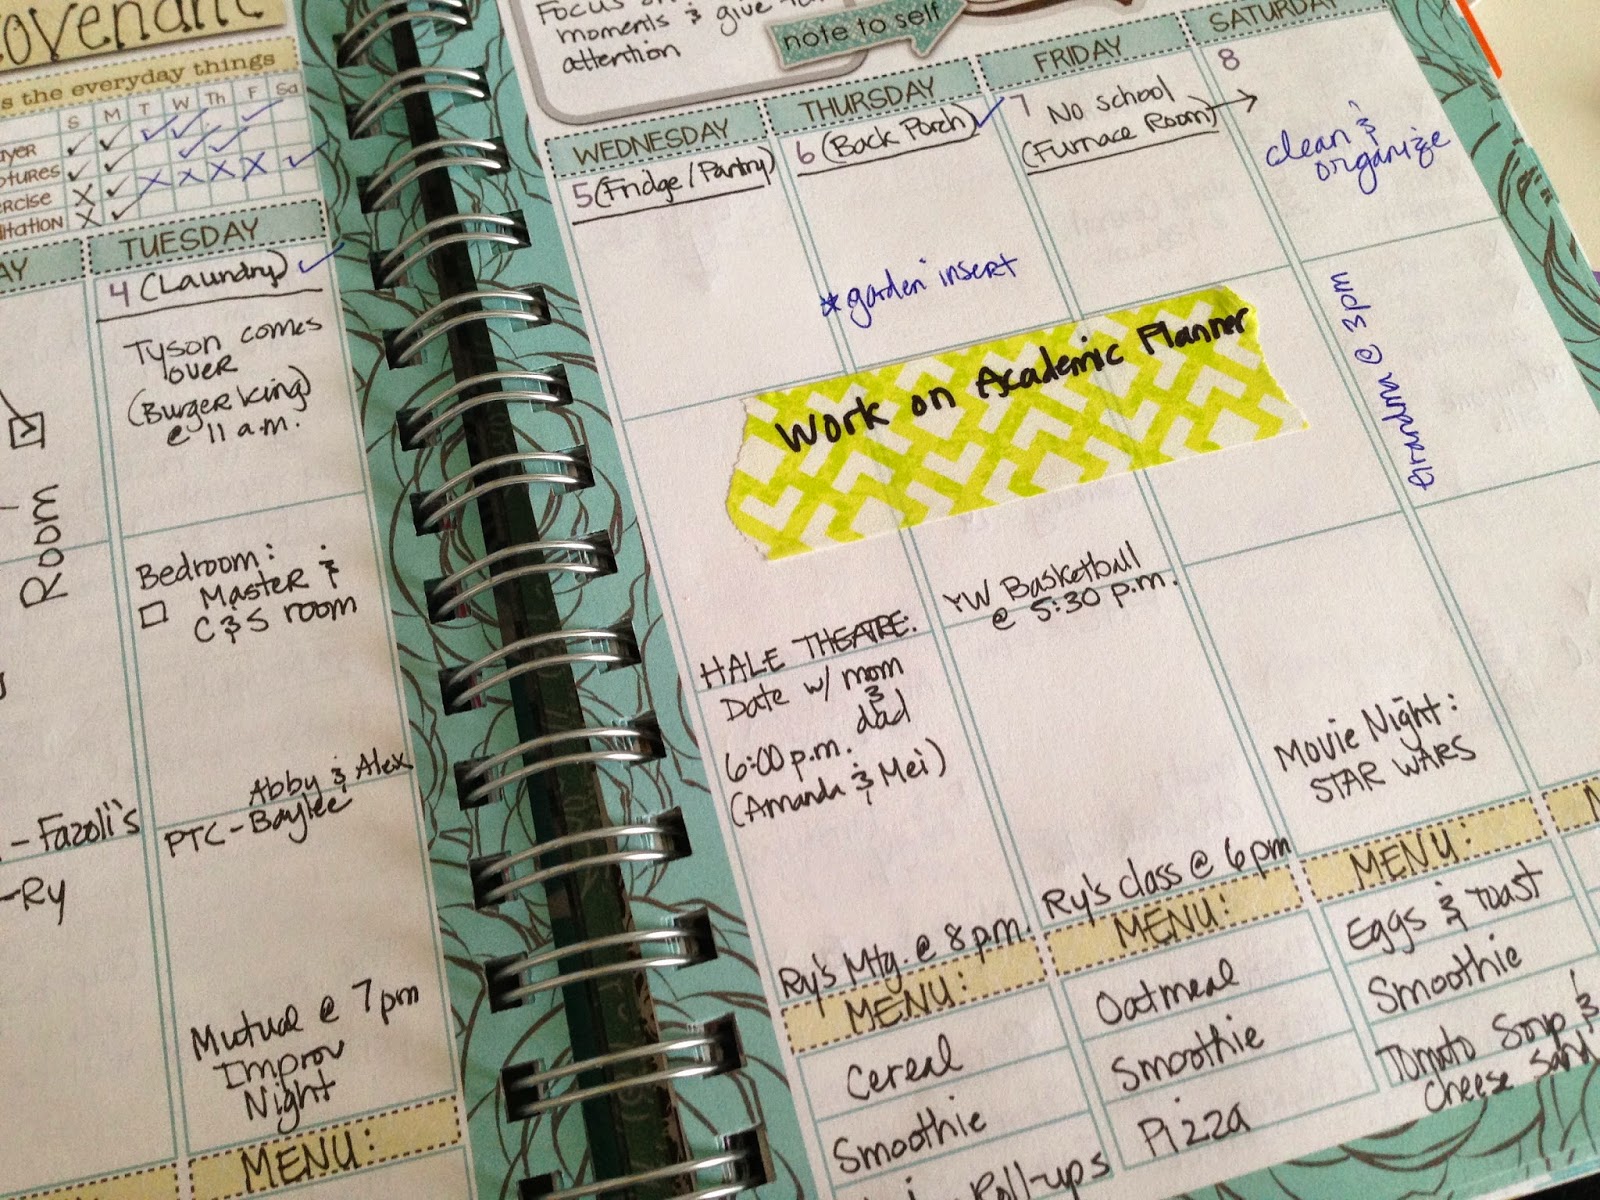 ovenant
s the everyday things
S M T W Th F Sa
ayer
ptures
ercise
itation
AY
TUESDAY
4 (Laundry)
Tyson comes
over
(Burger King)
@ 11 a.m.
Room
Bedroom:
Master &
C&S room
Abby & Alex
PTC-Baylee
- Fazoli's
-Ry
Mutual @ 7pm
Improv
Night
MENU:
Focus
moments & give
attention
note to self
WEDNESDAY
5 (Fridge/Pantry)
THURSDAY
6 (Back Porch)
FRIDAY
7 No school
(Furnace Room)
SATURDAY
8
clean &
organize
*garden insert
Work on Academic Planner
@ 3pm
HALE THEATRE:
Date w/ mom
&
dad
6:00 p.m.
(Amanda & Mei)
YW Basketball
@ 5:30 p.m.
Movie Night:
STAR WARS
Ry's Mtg. @ 8pm.
Ry's class @ 6pm
MENU:
Cereal
Smoothie
Roll-ups
MENU:
Oatmeal
Smoothie
Pizza
MENU:
Eggs & Toast
Smoothie
Tomato Soup &
Cheese Sand